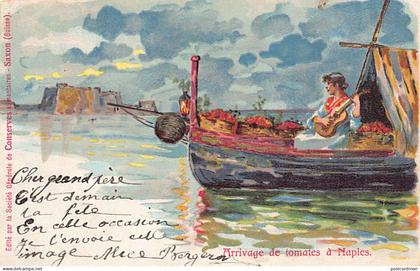 Edité par la Société Générale de Conserves Alimentaires - Saxon (Suisse).
Cher grand père
C'est demain
ta fête
En cette occasion
je t'envoie cette
image Alice
Arrivage de tomates à Naples.